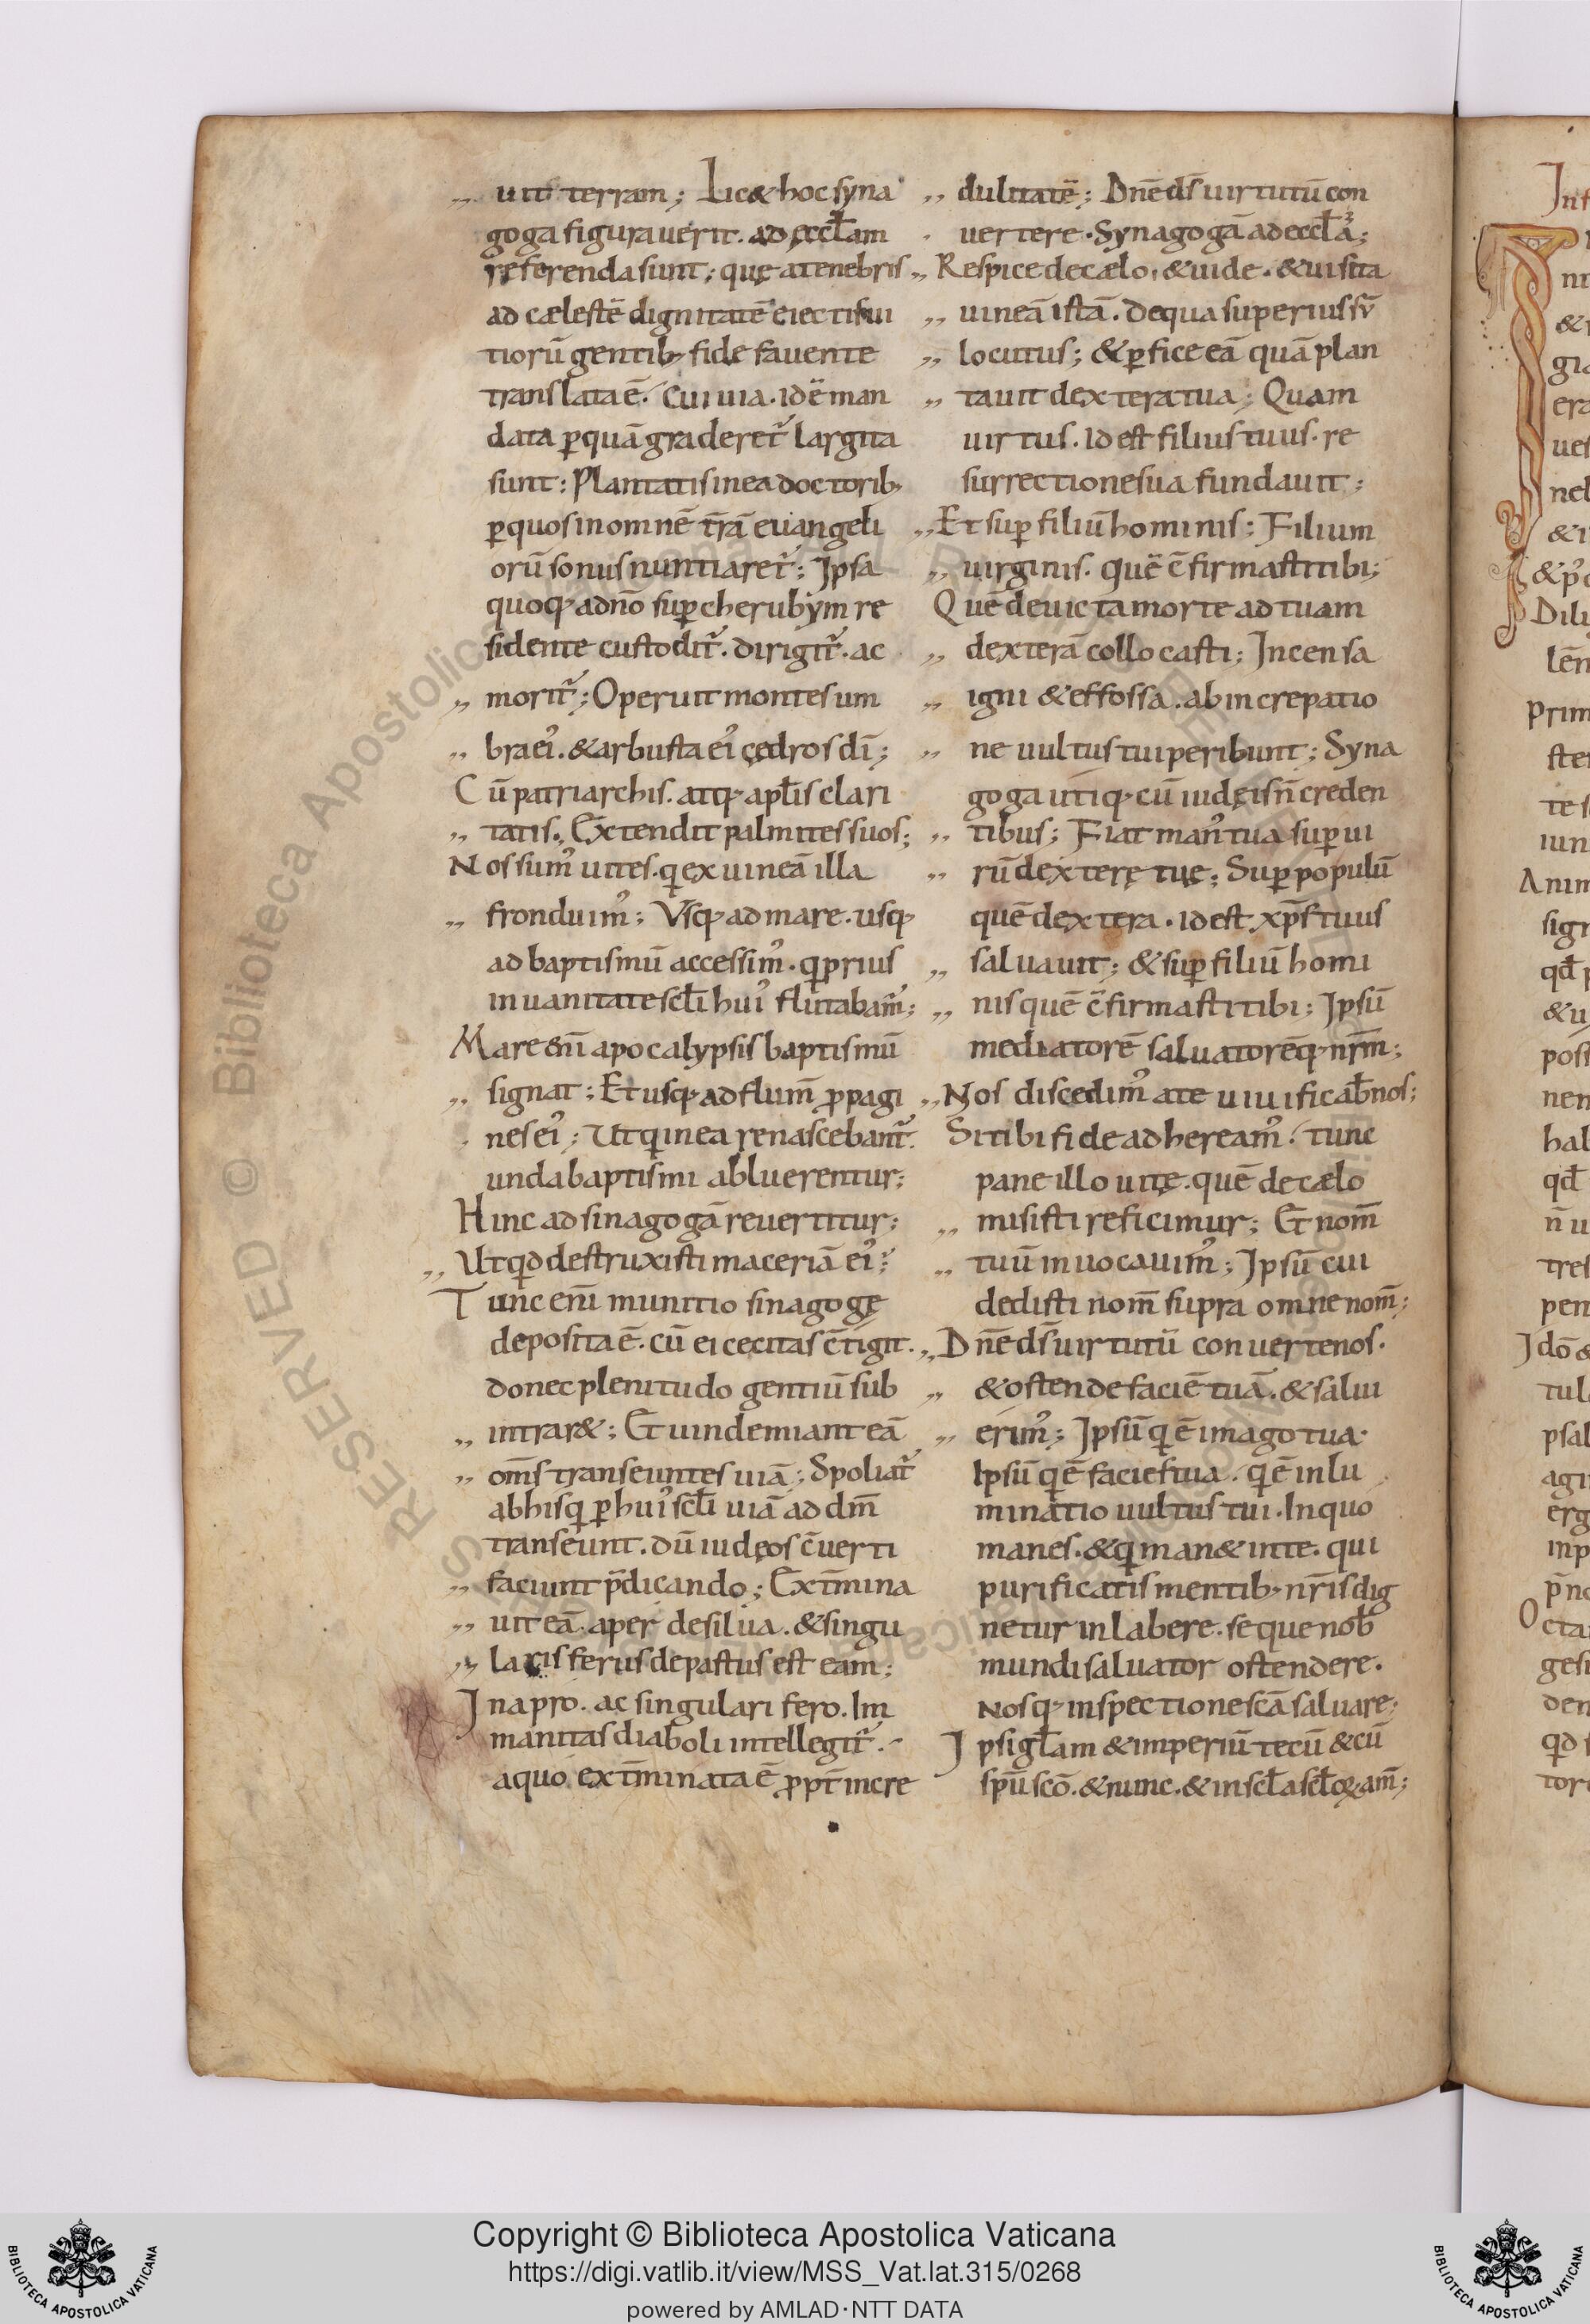 „ uit terram; Lic& hoc syna
goga figurauerit. ad ęccl̄am
referenda sunt; quę a tenebris
ad cælestē dignitatē eiectis ui
tiorū gentib; fide fauente
translata ē. Cui uia. idē man
data ꝑ quā graderet᷑ largita
sunt: Plantatis in ea doctorib;
ꝑ quos in omnē t̄rā euangeli
orū sonus nuntiaret᷑; Ipsa
quoq; a dn̄o suꝑ cherubẏm re
sidente custodit᷑. dirigit᷑. ac
„ morit᷑; Operuit montes um
„ bra ei᾽. & arbusta ei᾽ cędros dī;
Cū patriarchis. atq; apl̄is clari
„ tatis. Extendit palmites suos;
Nos sum᾽ uites. q̣ ex uineā illa
„ fronduim᾽; Vsq; ad mare. usq;
ad baptismū accessim᾽. q̣ prius
in uanitate scl̄i hui᾽ fluitabam᾽;
Mare enī apocalypsis baptismū
„ signat; Et usq; ad flum̄ ꝓpagi
nes ei᾽; Ut q̣ in ea renascebant᷑.
unda baptismi abluerentur;
Hinc ad sinagogā reuertitur;
„ Ut qd destruxisti maceriā ei᾽;
Tunc enī munitio sinagogę
deposita ē. cū ei cecitas c̄tigit.
donec plenitudo gentiū sub
„ intrar&; Et uindemiant eā
„ om̄s transeuntes uiā; Spoliat᷑
ab his q̣ ꝑ hui᾽ scl̄i uiā ad dm̄
transeunt. dū iudęos c̄uerti
„ faciunt p̄dicando; Ext̄mina
„ uit eā. aper de silua. & singu
„ laris ferus depastus est eam;
In apro. ac singulari fero. Im
manitas diaboli intellegit᷑.
a quo ext̄minata ē ꝓpt̄ incre
„ dulitatē; Dn̄e ds̄ uirtutū con
uertere. Synagogā ad eccl̄ā;
„ Respice de cælo, & uide. & uisita
„ uineā istā. de qua superius sū
„ locutus; & ꝑfice eā quā plan
„ tauit dextera tua; Quam
uirtus. id est filius tuus. re
surrectione sua fundauit;
„ Et suꝑ filiū hominis; Filium
„ uirginis. quē c̄firmasti tibi;
Quē deuicta morte ad tuam
„ dexterā collocasti; Incensa
„ igni & effossa. ab increpatio
„ ne uultus tui peribunt; Syna
goga utiq; cū iudęis n̄ creden
„ tibus; Fiat man᾽ tua suꝑ ui
„ rū dexterę tuę; Suꝑ populū
quē dextera. id est xp̄s tuus
„ saluauit; & suꝑ filiū homi
„ nis quē c̄firmasti tibi; Ipsū
mediatorē saluatorēq; nr̄m;
„ Nos discedim᾽ a te uiuificab̄ nos;
Si tibi fide adheream᾽. tunc
pane illo uitę. quē de cælo
„ misisti reficimur; Et nom̄
„ tuū inuocauim᾽; Ipsū cui
dedisti nom̄ supra omne nom̄;
„ Dn̄e ds̄ uirtutū conuerte nos.
„ & ostende faciē tuā. & salui
„ erim᾽; Ipsū q̣ ē imago tua.
Ipsū q̣ ē facies tua. q̣ ē inlu
minatio uultus tui. In quo
manes. & q̣ man& in te. qui
purificatis mentib; nr̄is dig
netur inlabere. seque nob̄
mundi saluator ostendere.
Nosq; inspectione scā saluare;
Ipsi gl̄am & imperiū tecū & cū
sp̄u scō. & nunc. & in scl̄a scl̄oꝝ am̄;
Copyright © Biblioteca Apostolica Vaticana
https://digi.vatlib.it/view/MSS_Vat.lat.315/0268
powered by AMLAD·NTT DATA